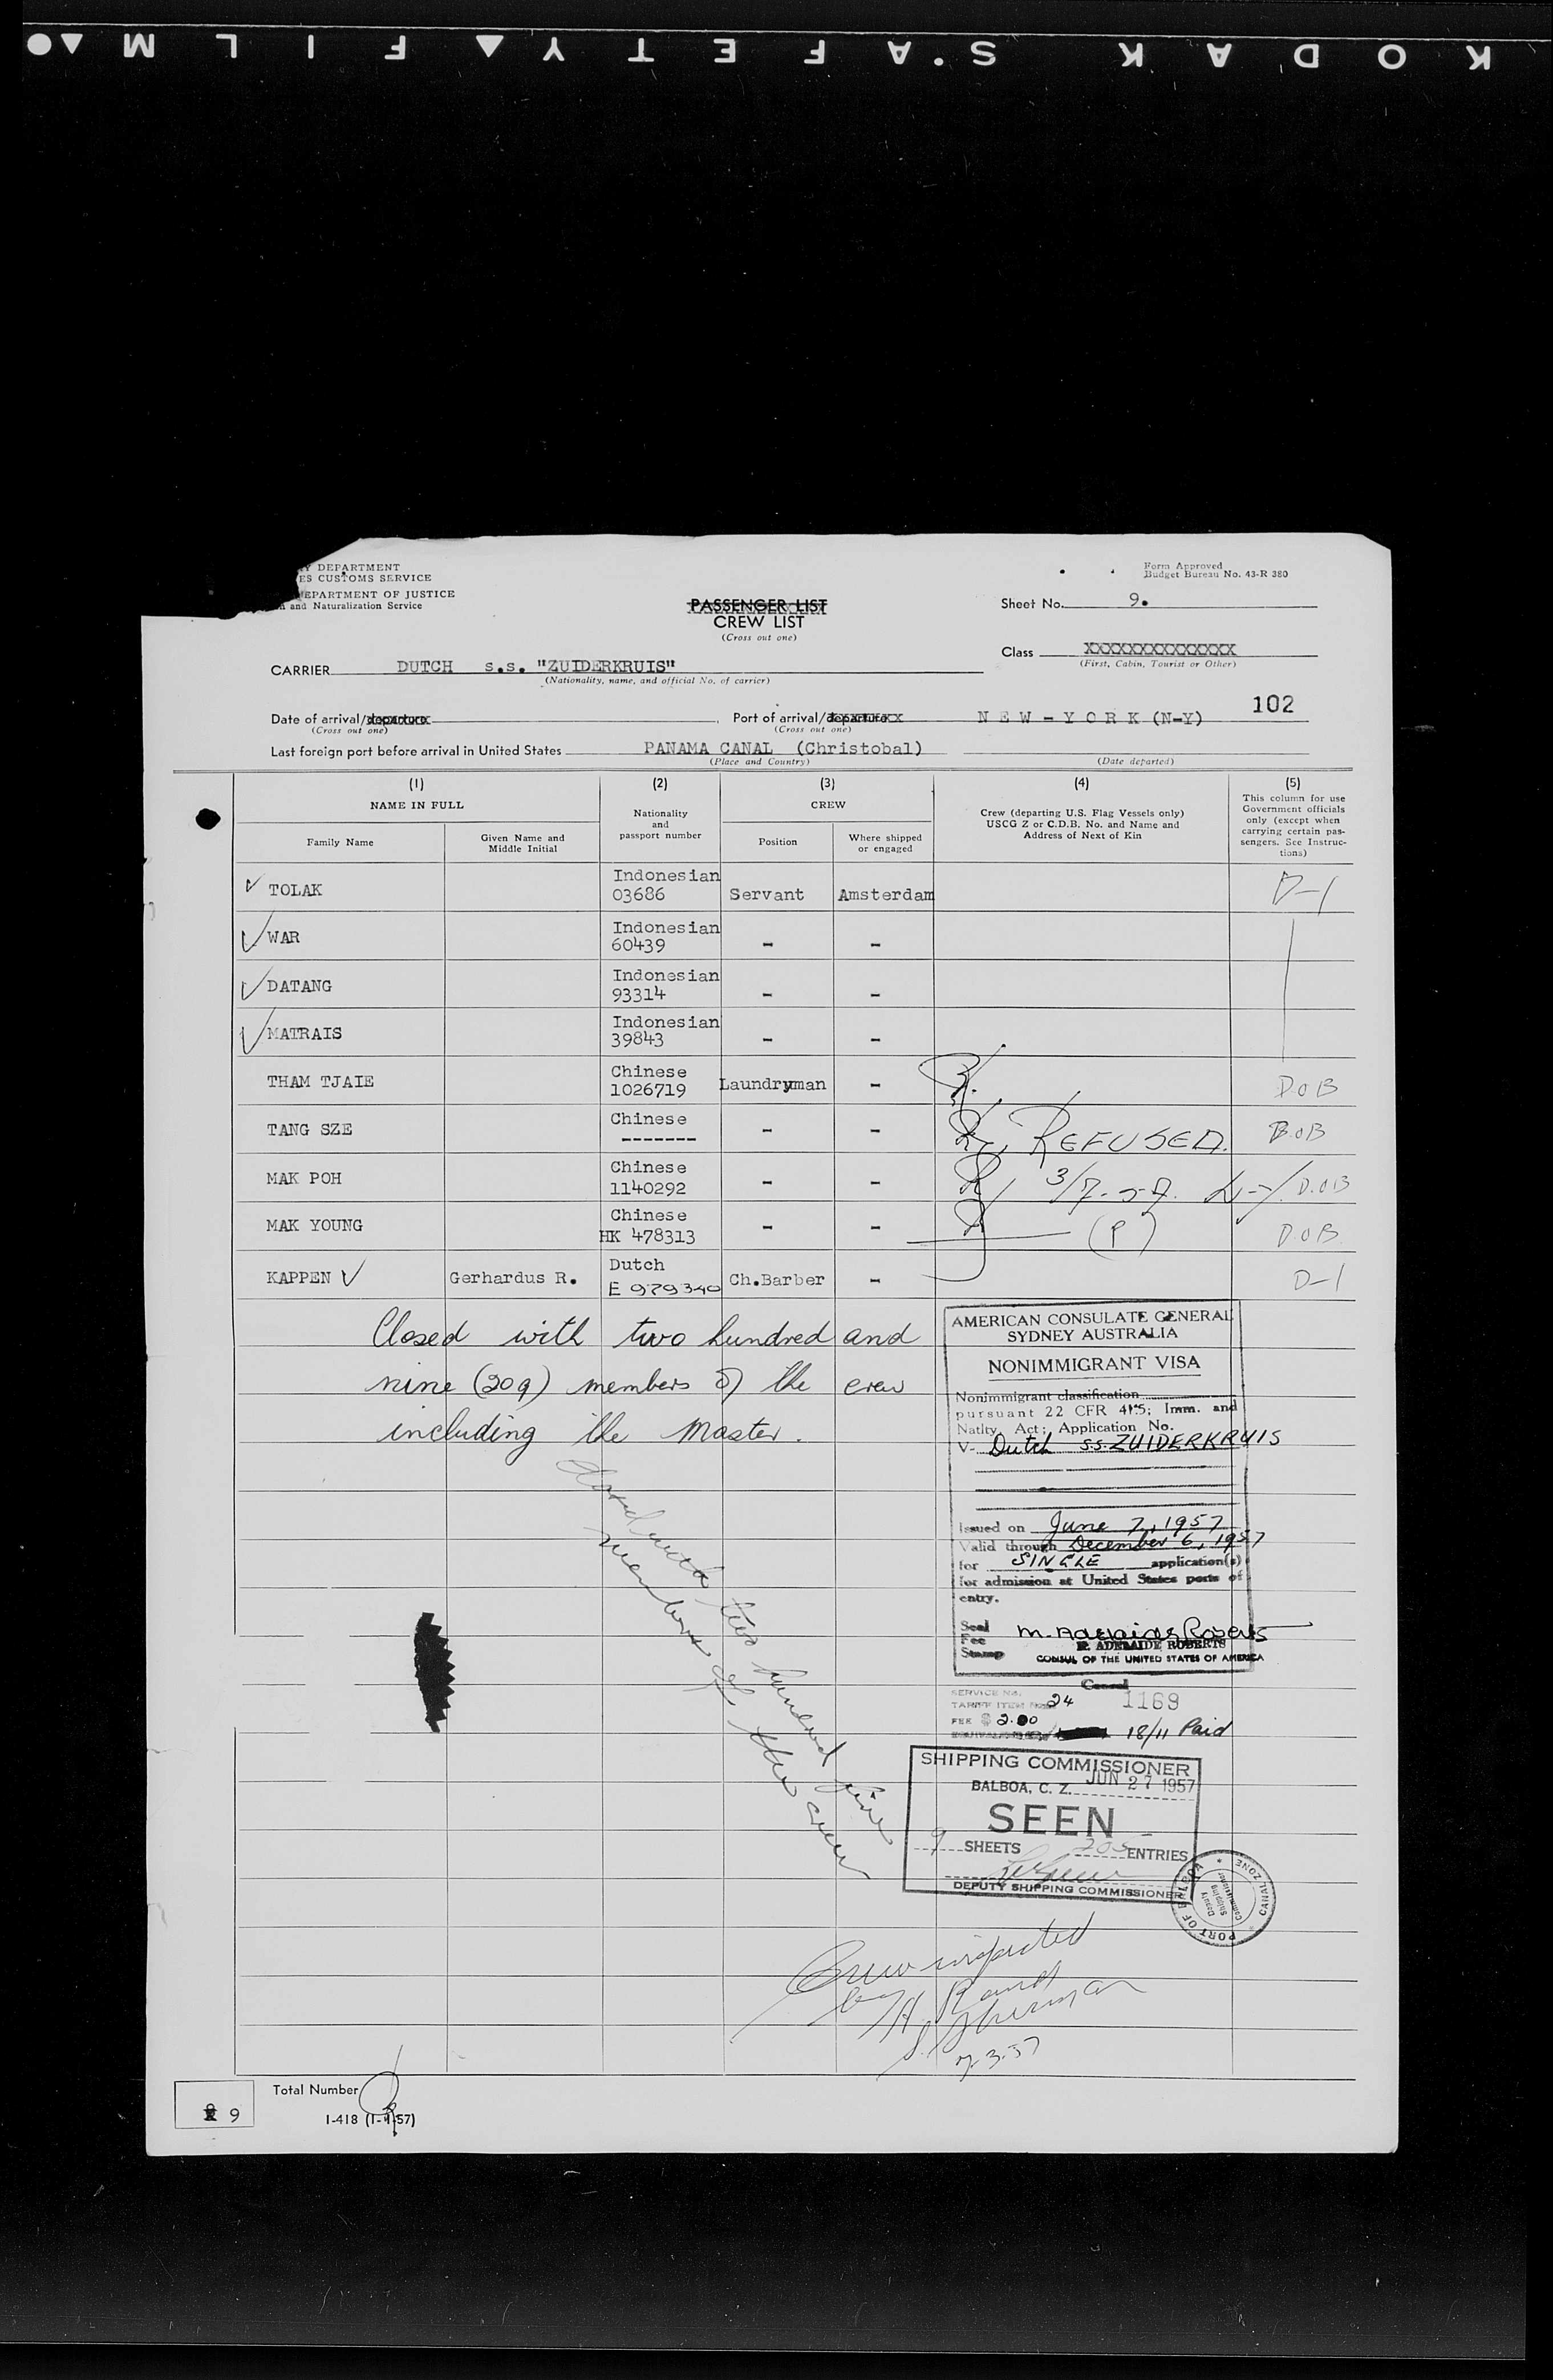 KODAK S.AFETY▲FILM▲●
Y DEPARTMENT
ES CUSTOMS SERVICE
EPARTMENT OF JUSTICE
n and Naturalization Service
Form Approved
Budget Bureau No. 43-R 380
PASSENGER LIST
CREW LIST
(Cross out one)
Sheet No. 9.
Class XXXXXXXXXXXXXX
(First, Cabin, Tourist or Other)
CARRIER DUTCH s.s. "ZUIDERKRUIS"
(Nationality, name, and official No. of carrier)
102
Date of arrival/departure
(Cross out one)
Port of arrival/departure NEW-YORK (N-Y)
(Cross out one)
Last foreign port before arrival in United States PANAMA CANAL (Christobal)
(Place and Country)
(Date departed)
(1) (2) (3) (4) (5)
NAME IN FULL
Nationality and passport number
CREW
Crew (departing U.S. Flag Vessels only) USCG Z or C.D.B. No. and Name and Address of Next of Kin
This column for use Government officials only (except when carrying certain passengers. See Instructions)
Family Name
Given Name and Middle Initial
Position
Where shipped or engaged
TOLAK Indonesian 03686 Servant Amsterdam D-1
WAR Indonesian 60439 - -
DATANG Indonesian 93314 - -
MATRAIS Indonesian 39843 - -
THAM TJAIE Chinese 1026719 Laundryman - D.O.B
TANG SZE Chinese ------- - - REFUSED. D.O.B
MAK POH Chinese 1140292 - - 3/7-57. D.O.B
MAK YOUNG Chinese HK 478313 - - (P) D.O.B.
KAPPEN Gerhardus R. Dutch E 979340 Ch.Barber - D-1
Closed with two hundred and
nine (209) members of the crew
including the Master.
Closed with two hundred five
members of the crew
AMERICAN CONSULATE GENERAL
SYDNEY AUSTRALIA
NONIMMIGRANT VISA
Nonimmigrant classification
pursuant 22 CFR 41.5; Imm. and
Natlty. Act; Application No.
V- Dutch s.s. ZUIDERKRUIS
Issued on June 7, 1957
Valid through December 6, 1957
for SINGLE application(s)
for admission at United States ports of
entry.
Seal
Fee
Stamp
M. Adelaide Roberts
M. ADELAIDE ROBERTS
CONSUL OF THE UNITED STATES OF AMERICA
Consul
SERVICE No. 1169
TARIFF ITEM No. 24
FEE $ 2.00
18/11 Paid
SHIPPING COMMISSIONER
BALBOA, C. Z. JUN 27 1957
SEEN
9 SHEETS 205 ENTRIES
DEPUTY SHIPPING COMMISSIONER
PORT OF BALBOA * CANAL ZONE *
Deputy
Shipping
Commissioner
Crew inspected
by H. Rand
S. Sherman
7-3-57
Total Number 9
9
I-418 (1-1-57)